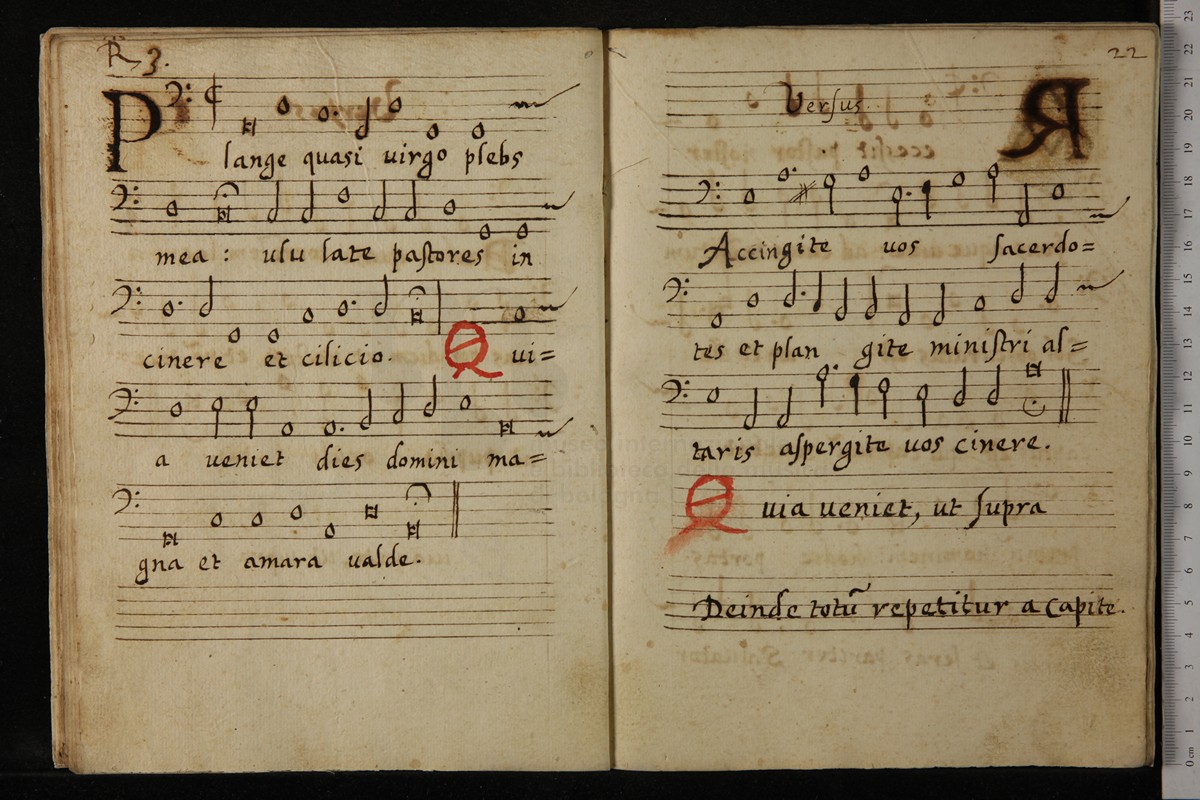 R 3.
Plange quasi uirgo plebs
mea : ulu late pastores in
cinere et cilicio. Qui=
a ueniet dies domini ma=
gna et amara ualde.
22
Versus
Accingite uos sacerdo=
tes et plan gite ministri al=
taris aspergite uos cinere.
Quia ueniet, ut supra
Deinde totũ repetitur a Capite.